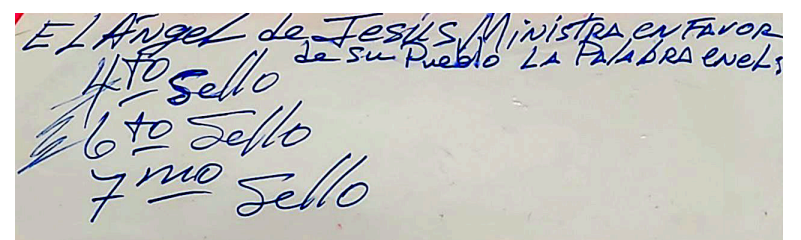 EL Ángel de Jesús, Ministra en Favor
de su Pueblo LA PALABRA en eL
4to Sello
6to Sello
7mo Sello